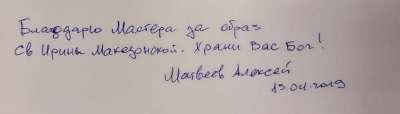 Благодарю Мастера за образ
Св Ирины Македонской. Храни Вас Бог!
Матвеев Алексей
13.04.2019